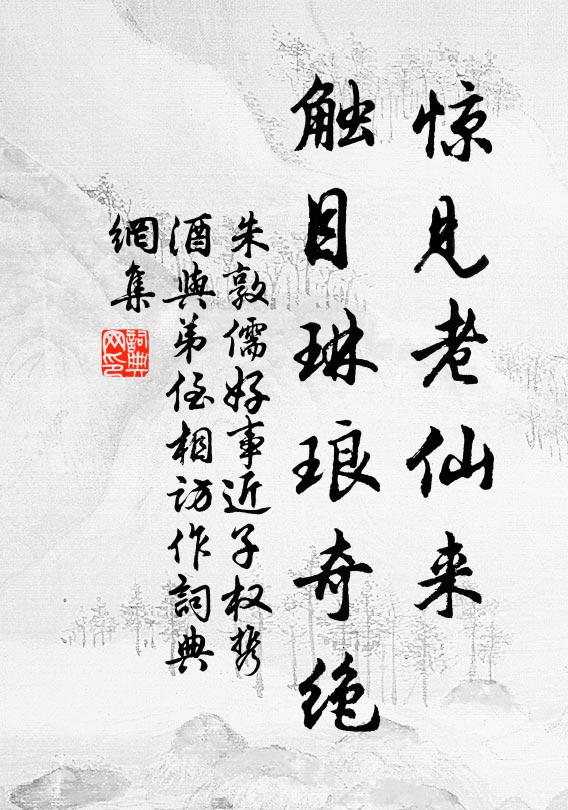 惊见老仙来
触目琳琅奇绝
朱敦儒好事近子权携
酒與弟侄相访作詞典
網集
詞典网印